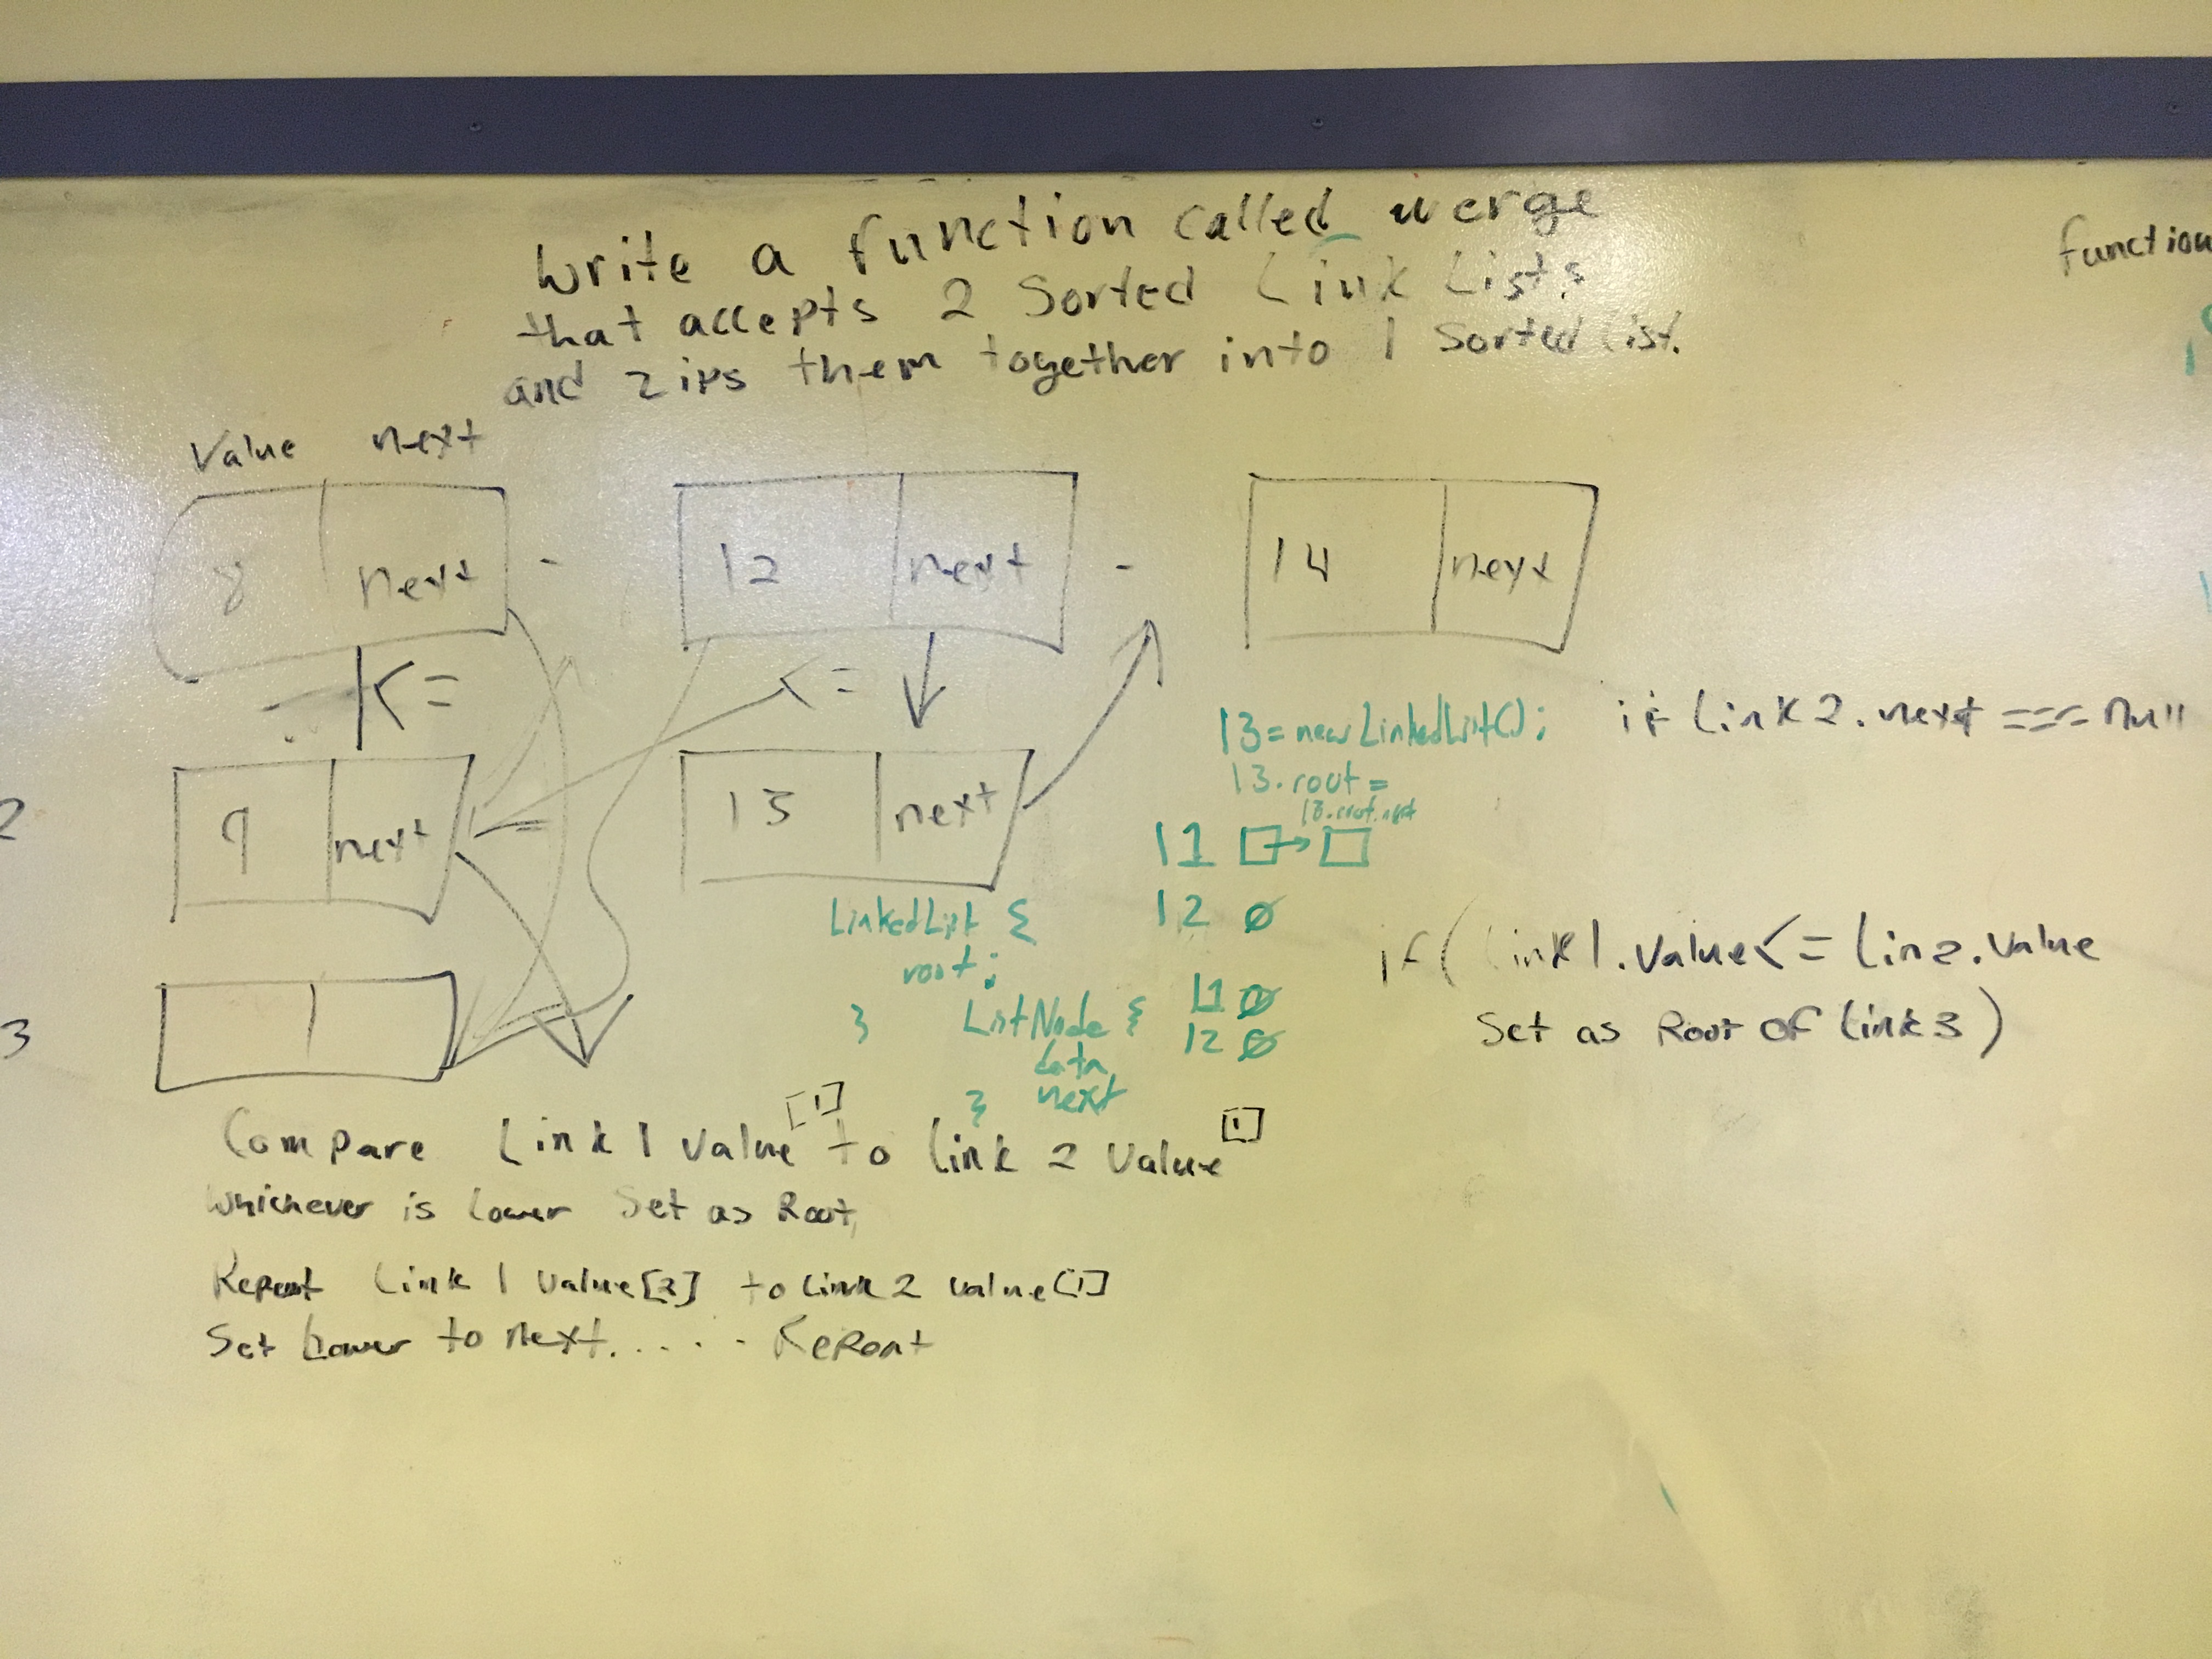 Write a function called merge
that accepts 2 Sorted Link Lists
and zips them together into 1 Sorted list.
function
Value next
8 next - 12 next - 14 next
<=
<=
2
9 next
13 next
l3 = new LinkedList();
l3.root =
l3.root.next
if Link2.next === null
l1
l2 ∅
LinkedList {
root;
}
ListNode {
data
next
}
l1 ∅
l2 ∅
if (Link1.Value <= Lin2.Value
Set as Root of Link3)
3
Compare Link 1 Value[1] to Link 2 Value[1]
Whichever is lower Set as Root,
Repeat Link 1 Value[2] to Link 2 Value[1]
Set Lower to next..... Repeat